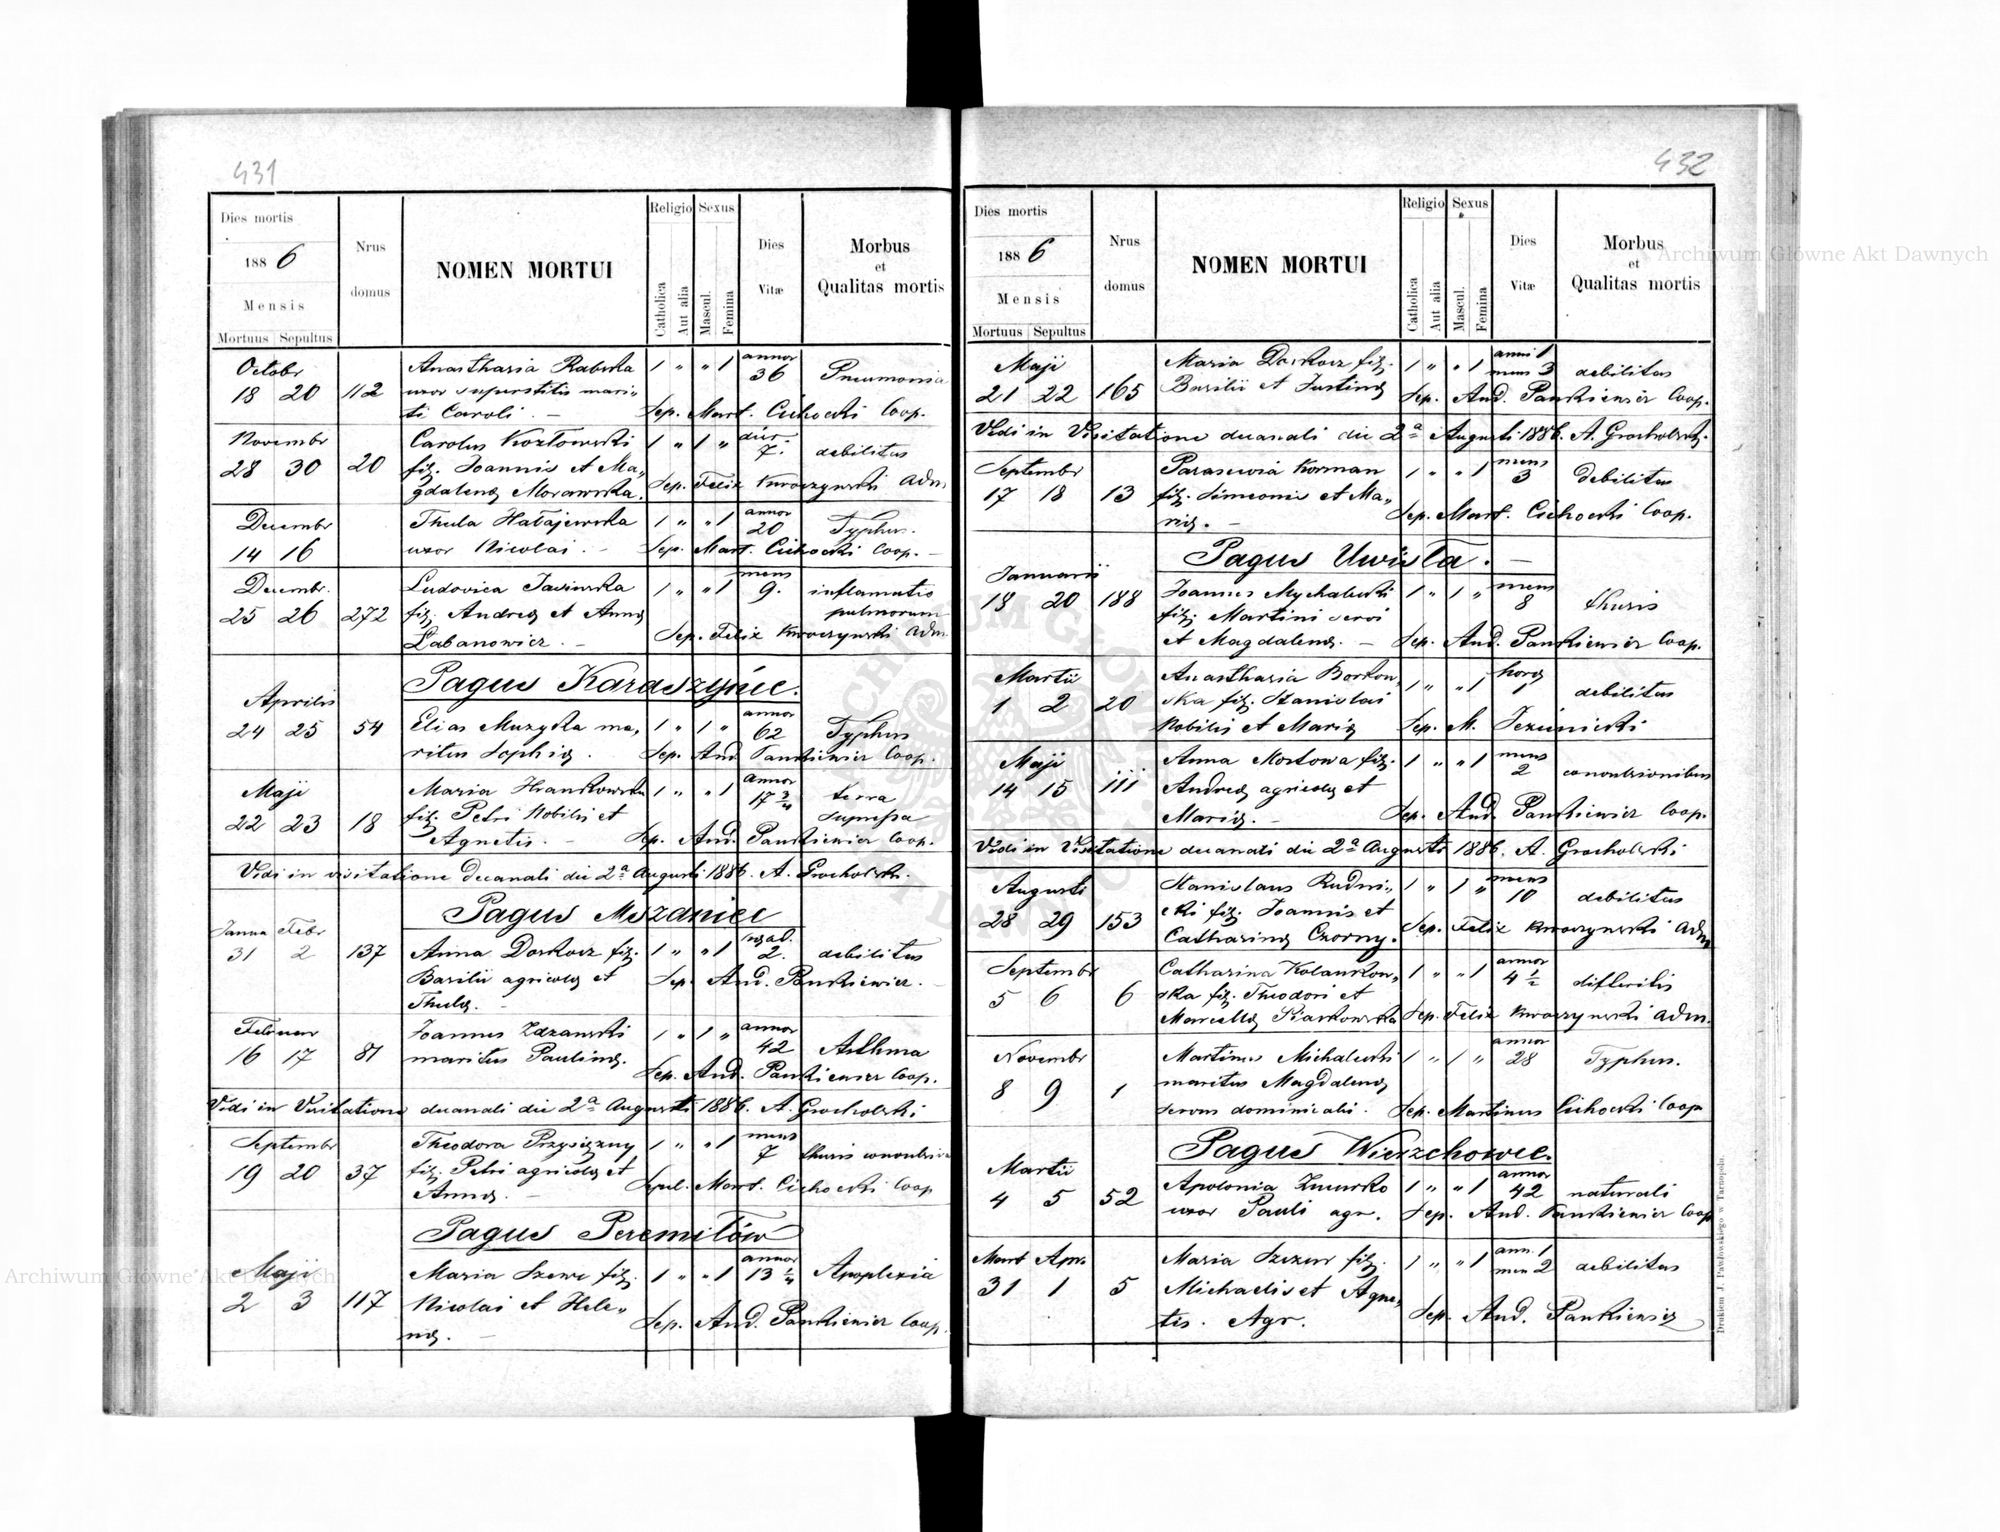 431
Dies mortis
1886
Mensis
Mortuus Sepultus
Nrus domus
NOMEN MORTUI
Religio
Catholica
Aut alia
Sexus
Mascul.
Femina
Dies Vitæ
Morbus et Qualitas mortis
Octobr Anasthasia Rabska 1 " " 1 annor
18 20 112 uxor superstitis mari= 36 Pneumonia
ti Caroli. — Sep. Mart. Cichocki Coop.
Novembr Carolus Kozłowski 1 " 1 " dier.
28 30 20 fil. Joannis et Ma= 7. debilitas
gdalenæ Morawska. Sep. Felix Kwoczyński Adm.
Decembr Thecla Hałajewska 1 " " 1 annor 20 Typhus.
14 16 uxor Nicolai. — Sep. Mart. Cichocki Coop. —
Decembr. Ludovica 1 " " 1 mens 9. inflamatio
25 26 272 fil. Andreæ et Annæ pulmorum
Łabanowicz. — Sep. Felix Kwoczyński Adm.
Pagus Karaszyńce.
Aprilis
24 25 54 Elias Muzyka ma= 1 " 1 " annor 62 Typhus
ritus Sophiæ. Sep. And Pankiewicz Coop.
Maji Maria Hrankowska 1 " " 1 annor 17 3/4 terra
22 23 18 fil. Petri Nobilis et supressa
Agnetis. — Sep. And. Pankiewicz Coop.
Vidi in visitatione decanali die 2a Augusti 1886. A. Grocholski.
Pagus Mszaniec
Janua Febr
31 2 137 Anna Doskocz fil. 1 " " 1 2. debilitas
Basilii agricolæ et Sep. And. Pankiewicz. —
Theclæ. —
Februar Joannes Zdzanski 1 " 1 " annor
16 17 81 maritus Paulinæ. 42 Asthma
Sep. And. Pankiewicz Coop.
Vidi in Visitatione decanali die 2a Augusti 1886. A. Grocholski
Septembr Theodora Przysiężny 1 " " 1 mens 7 thusis convulsiva
19 20 37 fil. Petri agricolæ et
Annæ. — Sepul. Mart. Cichocki Coop
Pagus Peremiłów
Maji Maria Szewc fil. 1 " " 1 annor 13 1/4 Apoplexia
2 3 117 Nicolai et Hele=
næ. — Sep. And. Pankiewicz Coop.
432
Dies mortis
1886
Mensis
Mortuus Sepultus
Nrus domus
NOMEN MORTUI
Religio
Catholica
Aut alia
Sexus
Mascul.
Femina
Dies Vitæ
Morbus et Qualitas mortis
Maji Maria Doskocz fil. 1 " " 1 anni 1 mens 3 debilitas
21 22 165 Basilii et Justinæ Sep. And. Pankiewicz Coop.
Vidi in Visitatione decanali die 2a Augusti 1886. A. Grocholski.
Septembr Parasewia Korman 1 " " 1 mens 3 Debilitas
17 18 13 fil. Simeonis et Ma=
riæ. — Sep. Mart. Cichocki Coop.
Pagus Uwisła. —
Januarii
18 20 188 Joannes Mychalewski 1 " 1 " mens 8 thusis
fil. Martini servi
et Magdalenæ. — Sep. And. Pankiewicz Coop.
Martii Anasthasia Borkow= 1 " " 1 horæ 1 debilitas
1 2 20 ska fil. Stanislai
Nobilis et Mariæ Sep. M. Jezienicki
Maji Anna Mostowa fil. 1 " " 1 mens 2 convulsionibus
14 15 111 Andreæ agricolæ et
Mariæ. — Sep. And. Pankiewicz Coop.
Vidi in Visitatione decanali die 2a Augusti 1886. A. Grocholski
Augusti Stanislaus Rudni= 1 " 1 " mens 10 debilitas
28 29 153 cki fil. Joannis et
Catharinæ Czorny. Sep. Felix Kwoczyński Adm
Septembr Catharina Kolankow= 1 " " 1 annor 4 1/2 difteritis
5 6 6 ska fil. Theodori et
Marcellæ Piaskowska Sep. Felix Kwoczyński Adm.
Novembr Martinus Michalewski 1 " 1 " annor 28 Typhus.
8 9 1 maritus Magdalenæ
servus dominicalis. Sep. Martinus Cichocki Coop
Pagus Wierzchowce.
Martii
4 5 52 Apolonia Zmurko 1 " " 1 annor 42 naturali
uxor Pauli agr. Sep. And. Pankiewicz Coop
Mart Apr. Maria Szczur fil. 1 " " 1 ann. 1 men 2 debilitas
31 1 5 Michaelis et Agne=
tis. Agr. Sep. And. Pankiewicz
Drukiem J. Pawłowskiego w Tarnopolu.
Archiwum Główne Akt Dawnych
Archiwum Główne Akt Dawnych
ARCHIWUM GŁÓWNE AKT DAWNYCH